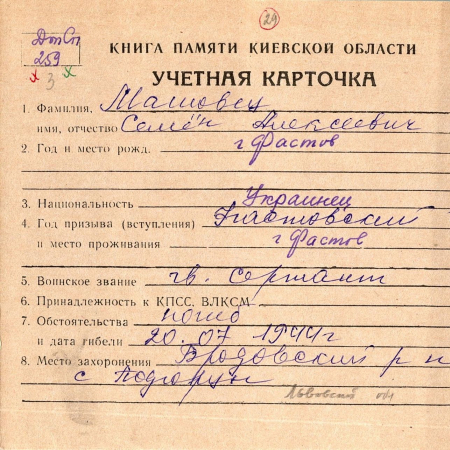 24
ДпСп
259
х 3 х
КНИГА ПАМЯТИ КИЕВСКОЙ ОБЛАСТИ
УЧЕТНАЯ КАРТОЧКА
1. Фамилия, Машовец
имя, отчество Семён Алексеевич
2. Год и место рожд. г Фастов
3. Национальность Украинец
4. Год призыва (вступления) Фастовский
и место проживания г Фастов
5. Воинское звание гв. Сержант
6. Принадлежность к КПСС, ВЛКСМ
7. Обстоятельства погиб
и дата гибели 20.07 1944г
8. Место захоронения Бродовский р н
с Подгорцы
Львовский обл